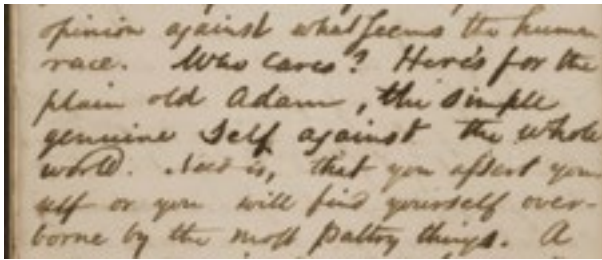 opinion against what seems the human
race. Who cares? Here's for the
plain old Adam, the simple
genuine Self against the whole
world. Need is, that you assert your
self or you will find yourself over-
borne by the most paltry things. A